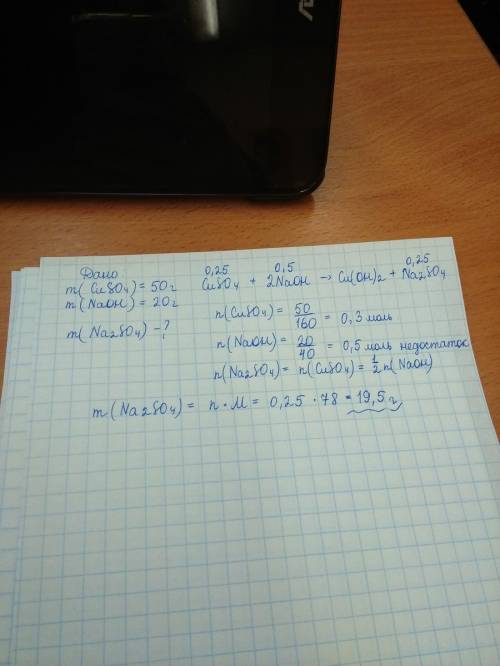 Дано
m(CuSO4) = 50 г
m(NaOH) = 20 г
m(Na2SO4) - ?
0,25 0,5 0,25
CuSO4 + 2NaOH → Cu(OH)2 + Na2SO4
n(CuSO4) = 50/160 = 0,3 моль
n(NaOH) = 20/40 = 0,5 моль недостаток
n(Na2SO4) = n(CuSO4) = 1/2 n(NaOH)
m(Na2SO4) = n · M = 0,25 · 78 = 19,5 г